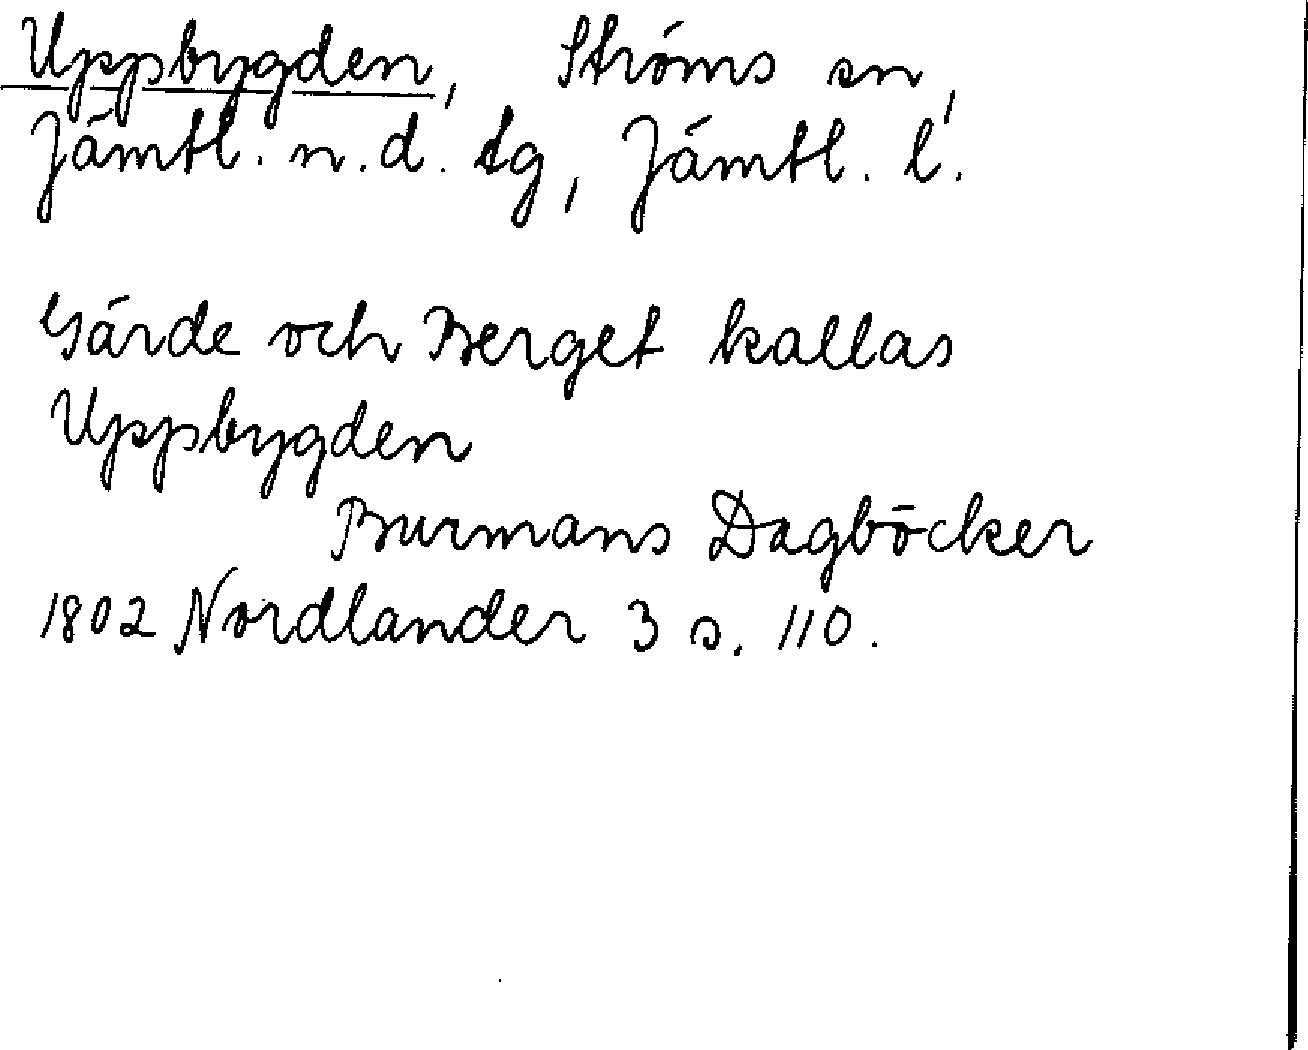 Uppbygden, Ströms sn,
Jämtl. n. d. tg, Jämtl. l.
Gärde och Berget kallas
Uppbygden
Burmans Dagböcker
1802 Nordlander 3 s. 110.